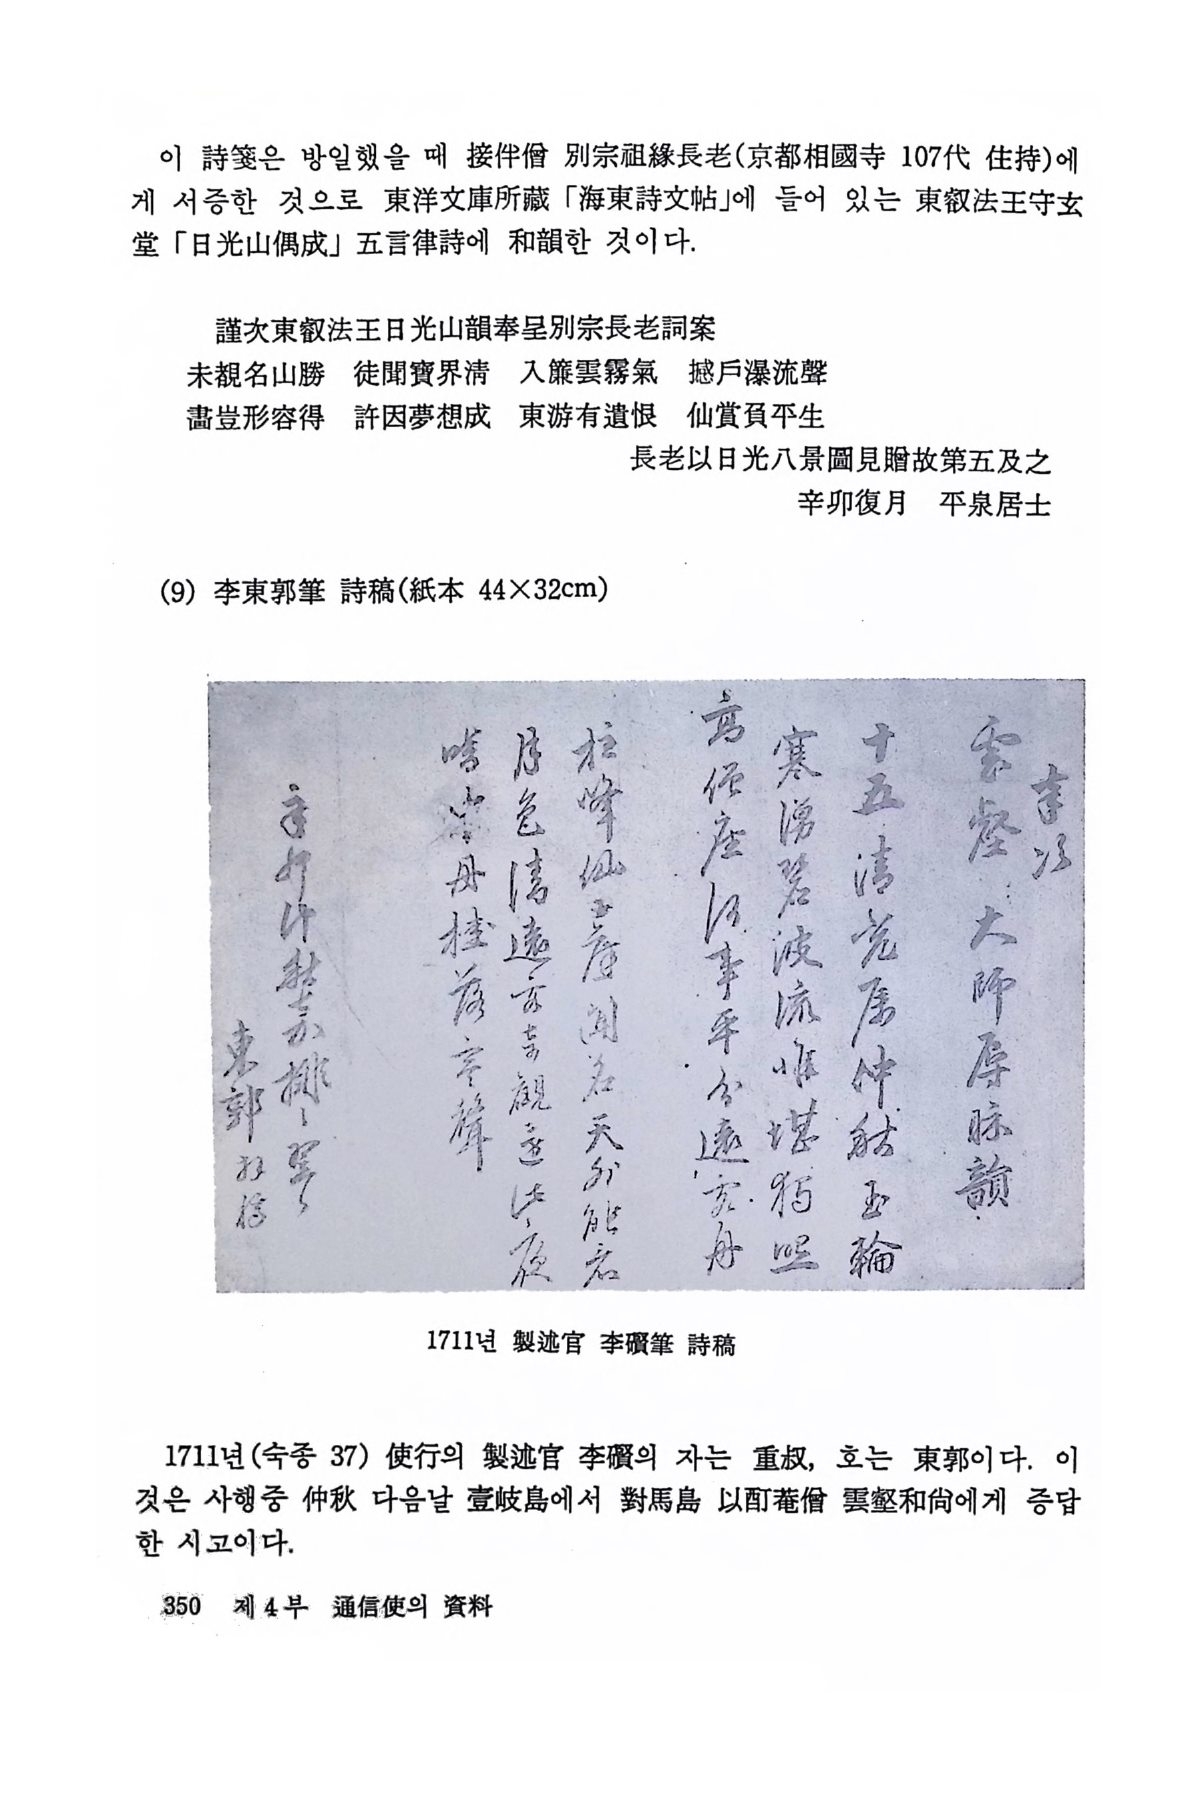 이 詩箋은 방일했을 때 接伴僧 別宗祖緣長老(京都相國寺 107代 住持)에
게 서증한 것으로 東洋文庫所藏 「海東詩文帖」에 들어 있는 東叡法王守玄
堂 「日光山偶成」 五言律詩에 和韻한 것이다.
謹次東叡法王日光山韻奉呈別宗長老詞案
未覩名山勝 徒聞寶界淸 入簾雲霧氣 撼戶瀑流聲
畵豈形容得 許因夢想成 東游有遺恨 仙賞負平生
長老以日光八景圖見贈故第五及之
辛卯復月 平泉居士
(9) 李東郭筆 詩稿(紙本 44×32cm)
奉次
雲壑大師辱贈韻
十五清光屬仲秋玉輪
寒湧碧波流唯堪獨照
高僧座何事平分遠客舟
月色清遠客
丹桂落寒聲
辛卯
東郭
1711년 製述官 李礥筆 詩稿
1711년(숙종 37) 使行의 製述官 李礥의 자는 重叔, 호는 東郭이다. 이
것은 사행중 仲秋 다음날 壹岐島에서 對馬島 以酊菴僧 雲壑和尙에게 증답
한 시고이다.
350 제4부 通信使의 資料